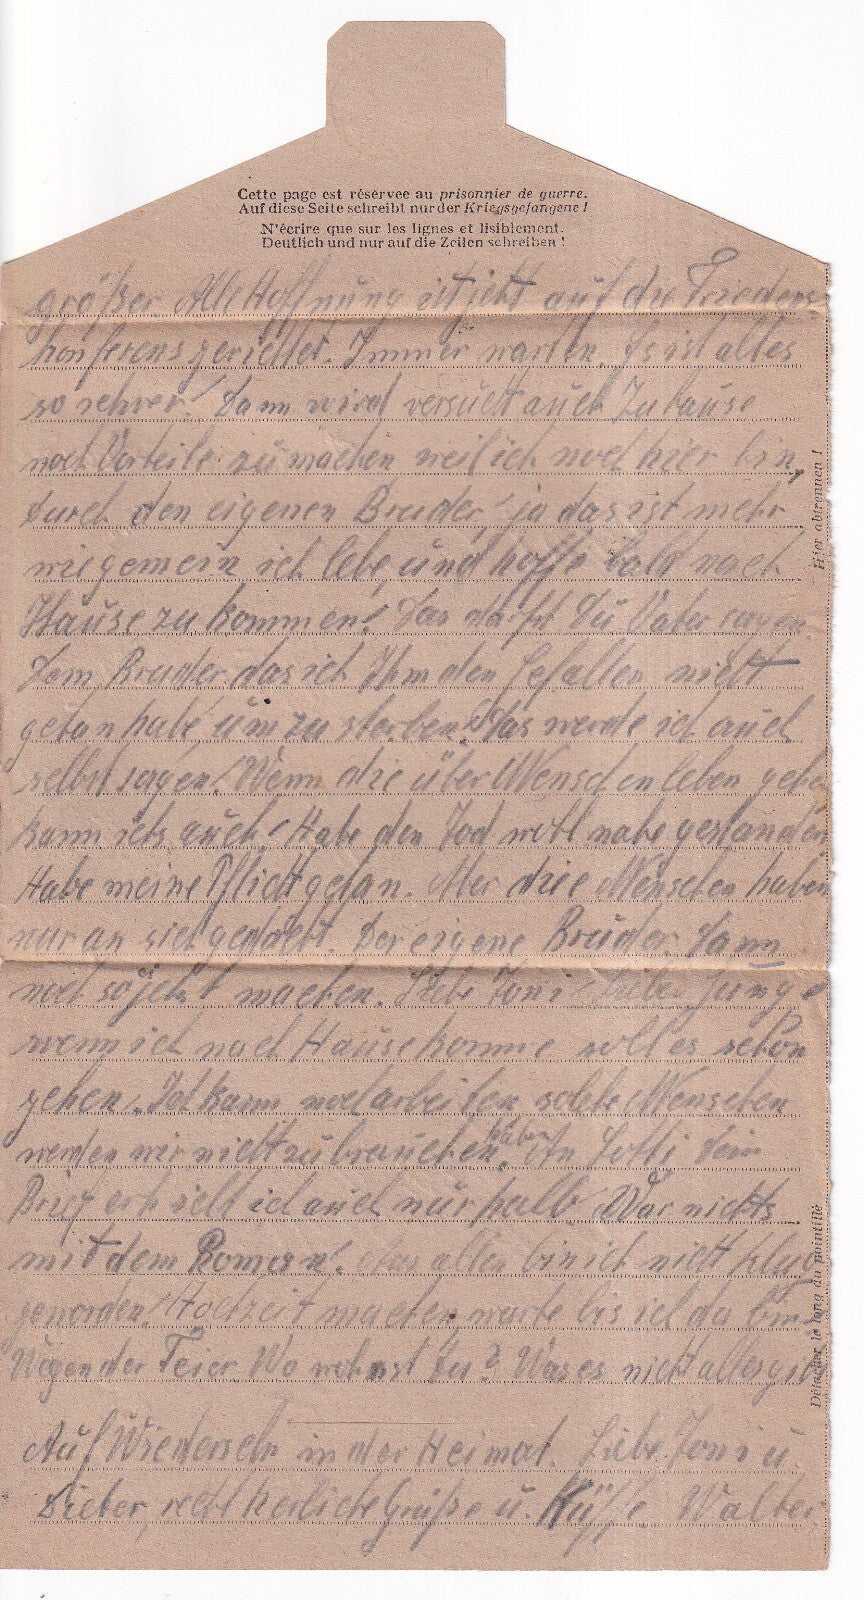 Cette page est réservée au prisonnier de guerre.
Auf diese Seite schreibt nur der Kriegsgefangene !
N'écrire que sur les lignes et lisiblement.
Deutlich und nur auf die Zeilen schreiben !
größer. Alle Hoffnung ist jetzt auf die Friedens
konferens gerichtet. Immer warten. Es ist alles
so schwer! Dann wird versucht auch Zuhause
noch Vorteile zu machen weil ich noch hier bin,
durch den eigenen Bruder, ja das ist mehr
wie gemein ich lebe und hoffe bald nach
Hause zu kommen! Das darfst Du Vater sagen
Dem Bruder das ich Ihm den Gefallen nicht
getan habe um zu sterben. Das werde ich auch
selbst sagen! Wenn die über Menschenleben gehen
kann ichs auch. Habe den Tod wohl nahe gestanden
Habe meine Pflicht getan. Aber die Menschen haben
nur an sich gedacht. Der eigene Bruder dann
noch so jetzt machen. Liebe Toni lieber Junge
wenn ich nach Hause komme soll es schon
gehen. Ich kann noch arbeiten solche Menschen
werden wir nicht zu brauchen. An Dein
Brief erhielt ich auch nur halb. War nichts
mit dem aus allen bin ich nicht klug
geworden! Hochzeit machen warte bis ich da bin
Wegen der Feier. Wo wohnst Du? Was es nicht alles gibt
Auf Wiedersehn in der Heimat. Liebe Toni u.
Dieter, recht herzliche Grüße u. Küsse Walter
Hier abtrennen !
Détacher le long du pointillé